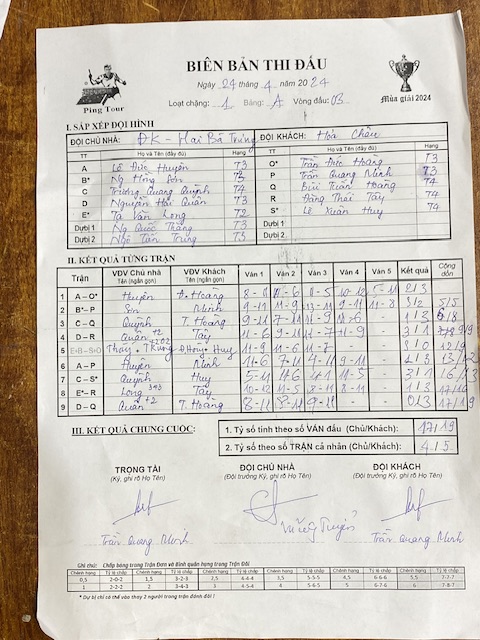 BIÊN BẢN THI ĐẤU
Ping Tour
Ngày 24 tháng 4 năm 2024
Mùa giải 2024
Loạt chặng: 1 Bảng: A Vòng đấu: 03
I. SẮP XẾP ĐỘI HÌNH
ĐỘI CHỦ NHÀ: ĐK - Hai Bà Trưng ĐỘI KHÁCH: Hỏa Châu
TT Họ và Tên (đầy đủ) Hạng TT Họ và Tên (đầy đủ) Hạng
A Lê Đức Huyên T3 O* Trần Đức Hoàng T3
B* Ng Hồng Sơn T3 P Trần Quang Minh T3
C Trương Quang Quỳnh T4 Q Bùi Tuấn Hoàng T4
D Nguyễn Hải Quân T3 R Đặng Thái Tây T4
E* Tạ Văn Long T2 S* Lê Xuân Huy T4
Dự bị 1 Ng Quốc Thắng T3 Dự bị 1
Dự bị 2 Ngô Tấn Trung T3 Dự bị 2
II. KẾT QUẢ TỪNG TRẬN
Trận VĐV Chủ nhà Tên (ngắn gọn) VĐV Khách Tên (ngắn gọn) Ván 1 Ván 2 Ván 3 Ván 4 Ván 5 Kết quả Cộng dồn
1 A – O* Huyên Đ. Hoàng 2/3
2 B* – P Sơn Minh 3/2 5/5
3 C – Q Quỳnh T. Hoàng 1/3 6/8
4 D – R Quân Tây 11-6 3/1 9/9
5 E+B – S+O Trung Huy 11-9 11-6 11-7 3/0 12/9
6 A – P Huyên Minh 7-11 4-11 9-11 1/3 13/12
7 C – S* Quỳnh Huy 3/1 16/13
8 E* – R Long Tây 1/3 17/16
9 D – Q Quân T. Hoàng 8-11 8-11 9-11 0/3 17/19
III. KẾT QUẢ CHUNG CUỘC:
1. Tỷ số tính theo số VÁN đấu (Chủ/Khách): 17/19
2. Tỷ số theo số TRẬN cá nhân (Chủ/Khách): 4/5
TRỌNG TÀI ĐỘI CHỦ NHÀ ĐỘI KHÁCH
(Ký, ghi rõ Họ Tên) (Đội trưởng Ký, ghi rõ Họ Tên) (Đội trưởng Ký, ghi rõ Họ Tên)
Trần Quang Minh Trần Quang Minh
Ghi chú: Chấp bóng trong Trận Đơn và Bình quân hạng trong Trận Đôi
Chênh hạng Tỷ lệ chấp Chênh hạng Tỷ lệ chấp Chênh hạng Tỷ lệ chấp Chênh hạng Tỷ lệ chấp Chênh hạng Tỷ lệ chấp Chênh hạng Tỷ lệ chấp
0,5 2-0-2 1,5 3-2-3 2,5 4-4-4 3,5 5-5-5 4,5 6-6-6 5,5 7-7-7
1 2-2-2 2 3-4-3 3 4-5-4 4 5-6-5 5 6-7-6 6 7-8-7
* Dự bị chỉ có thể vào thay 2 người trong trận đánh đôi !